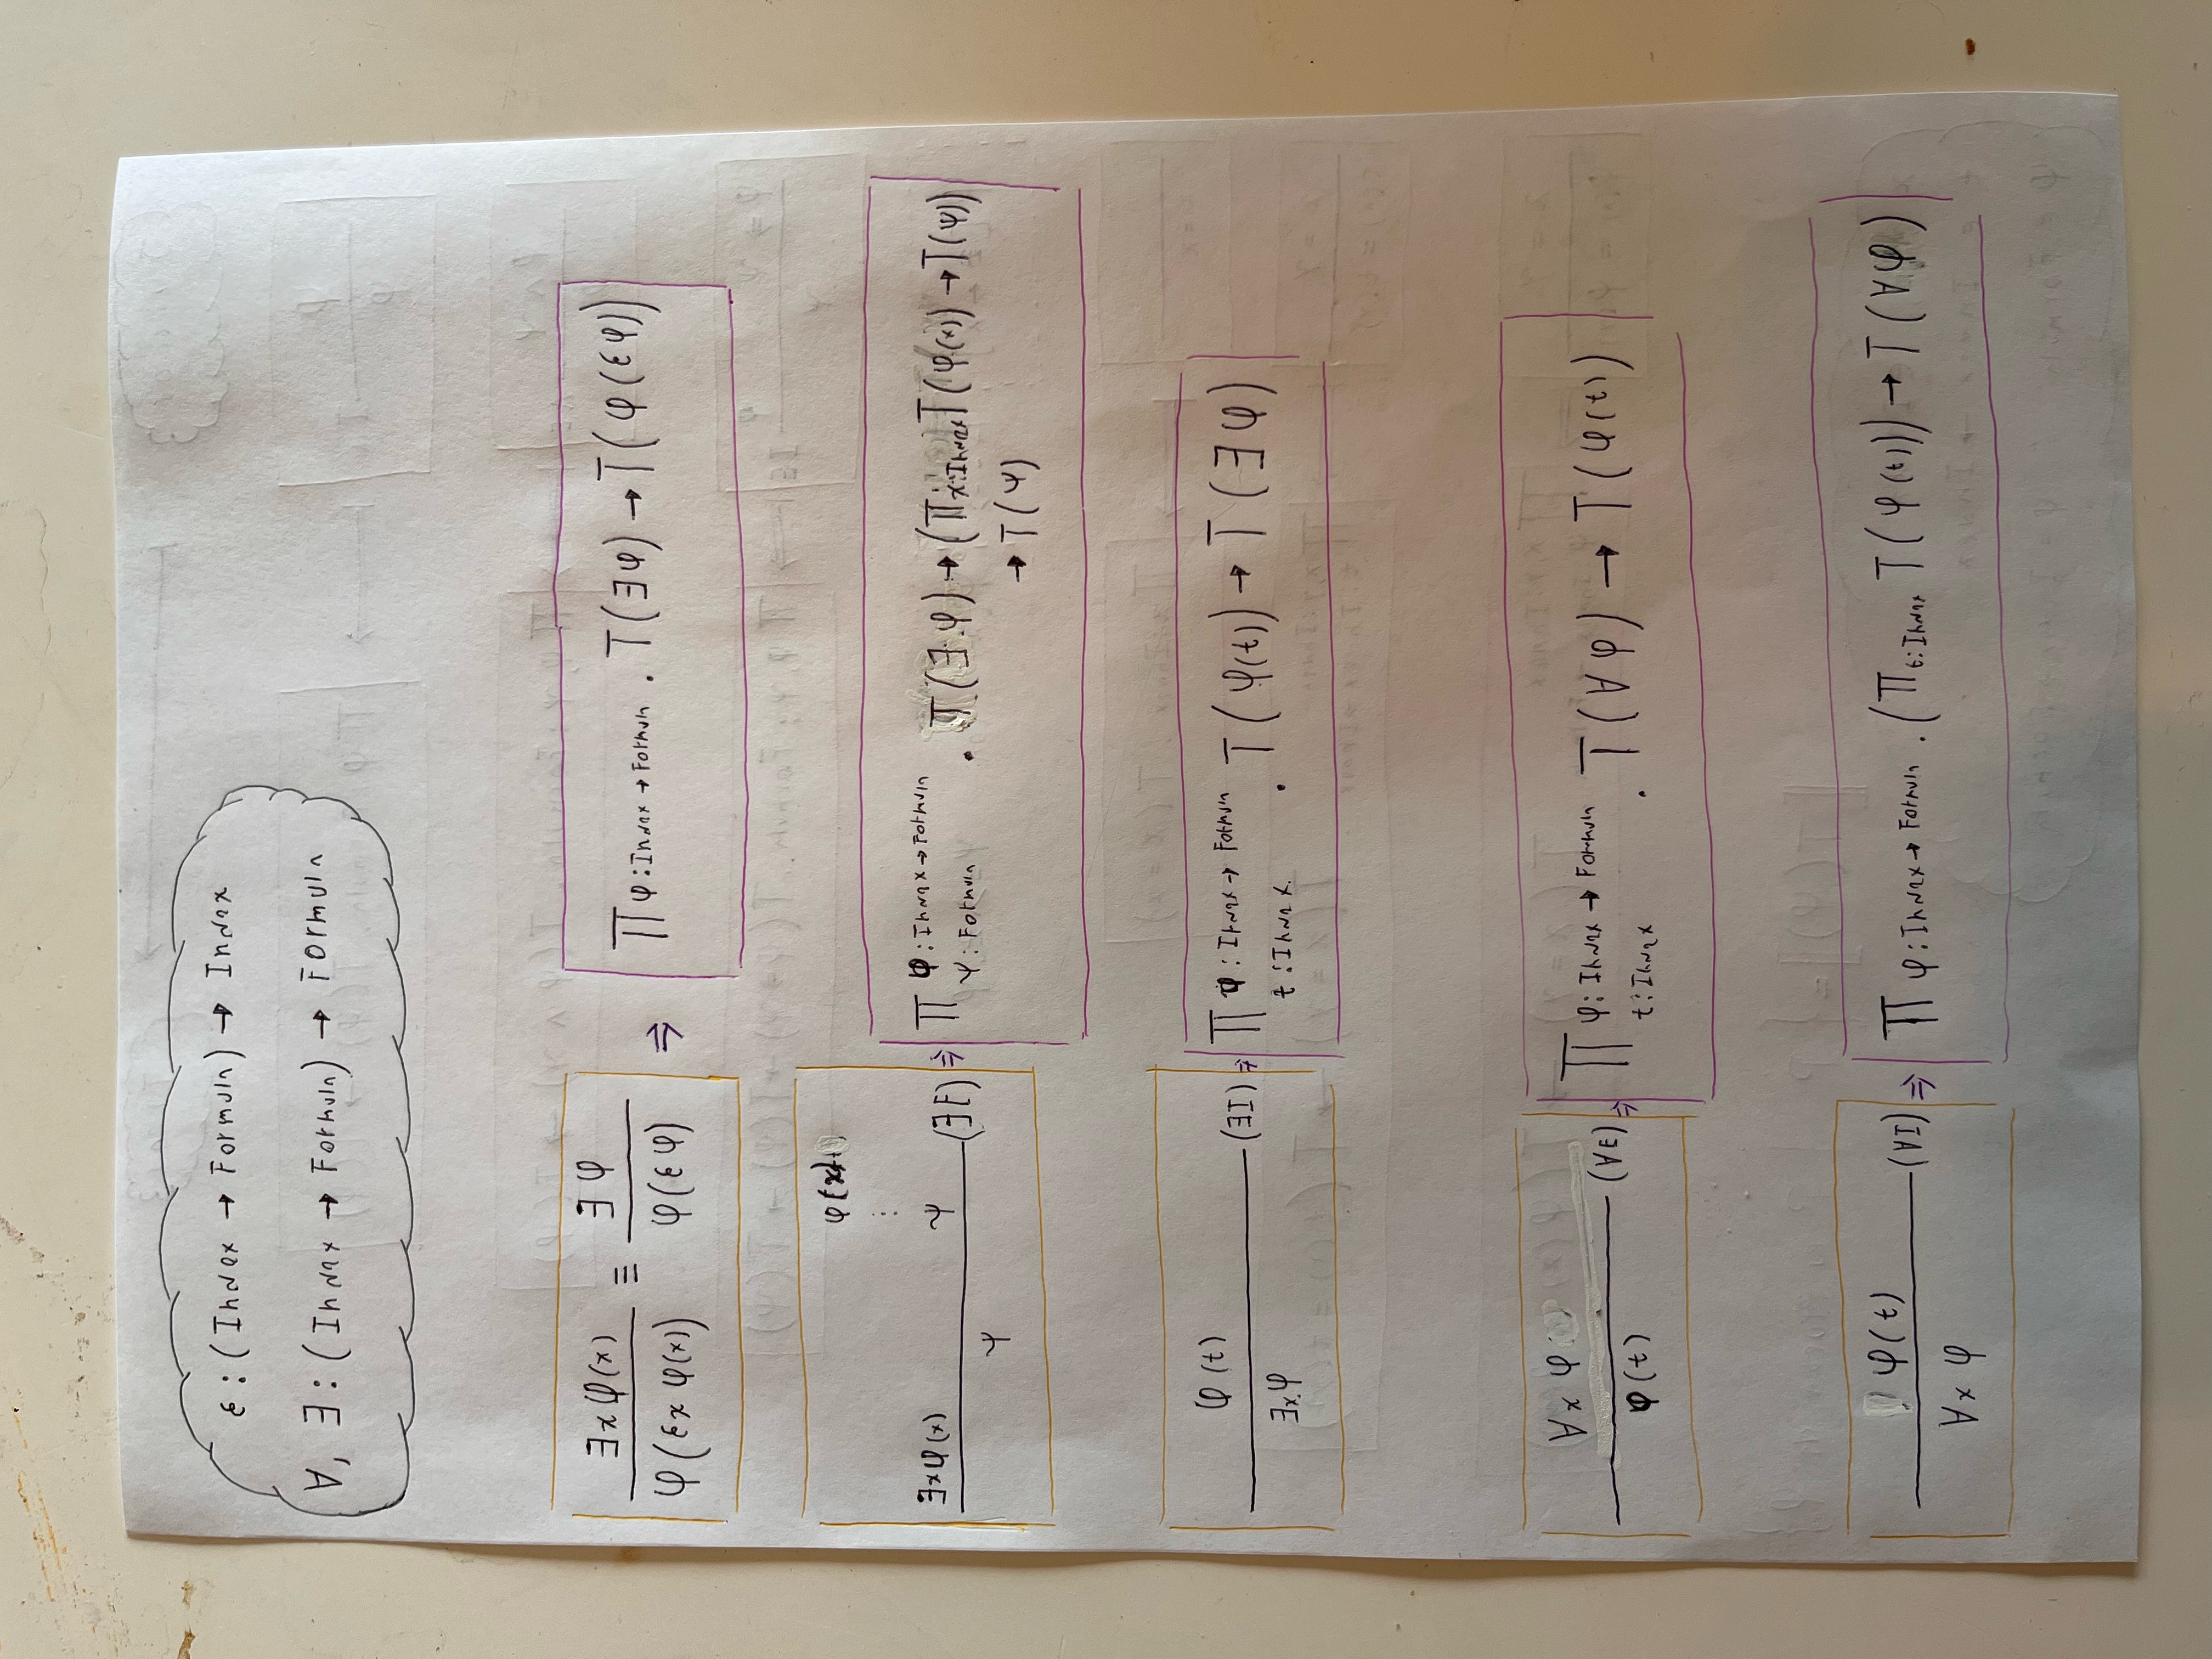 ε : (Index → Formula) → Index
∀, ∃ : (Index → Formula) → Formula
∃x φ(x) ≡ ∃φ
φ(εx φ(x)) φ(εφ)
⇒ Π φ : Index → Formula . T(∃φ) → T(φ(εφ))
φ(x)
⋮
∃x φ(x) ψ (∃E)
ψ
⇒ Π φ : Index → Formula
ψ : Formula . T(∃φ) → (Π x : Index T(φ(x)) → T(ψ))
→ T(ψ)
φ(t)
(∃I)
∃x.φ
⇒ Π φ : Index → Formula
t : Index . T(φ(t)) → T(∃φ)
∀x φ
(∀E)
φ(t)
⇒ Π φ : Index → Formula
t : Index . T(∀φ) → T(φ(t))
φ(t)
(∀I)
∀x φ
⇒ Π φ : Index → Formula . (Π t : Index T(φ(t))) → T(∀φ)